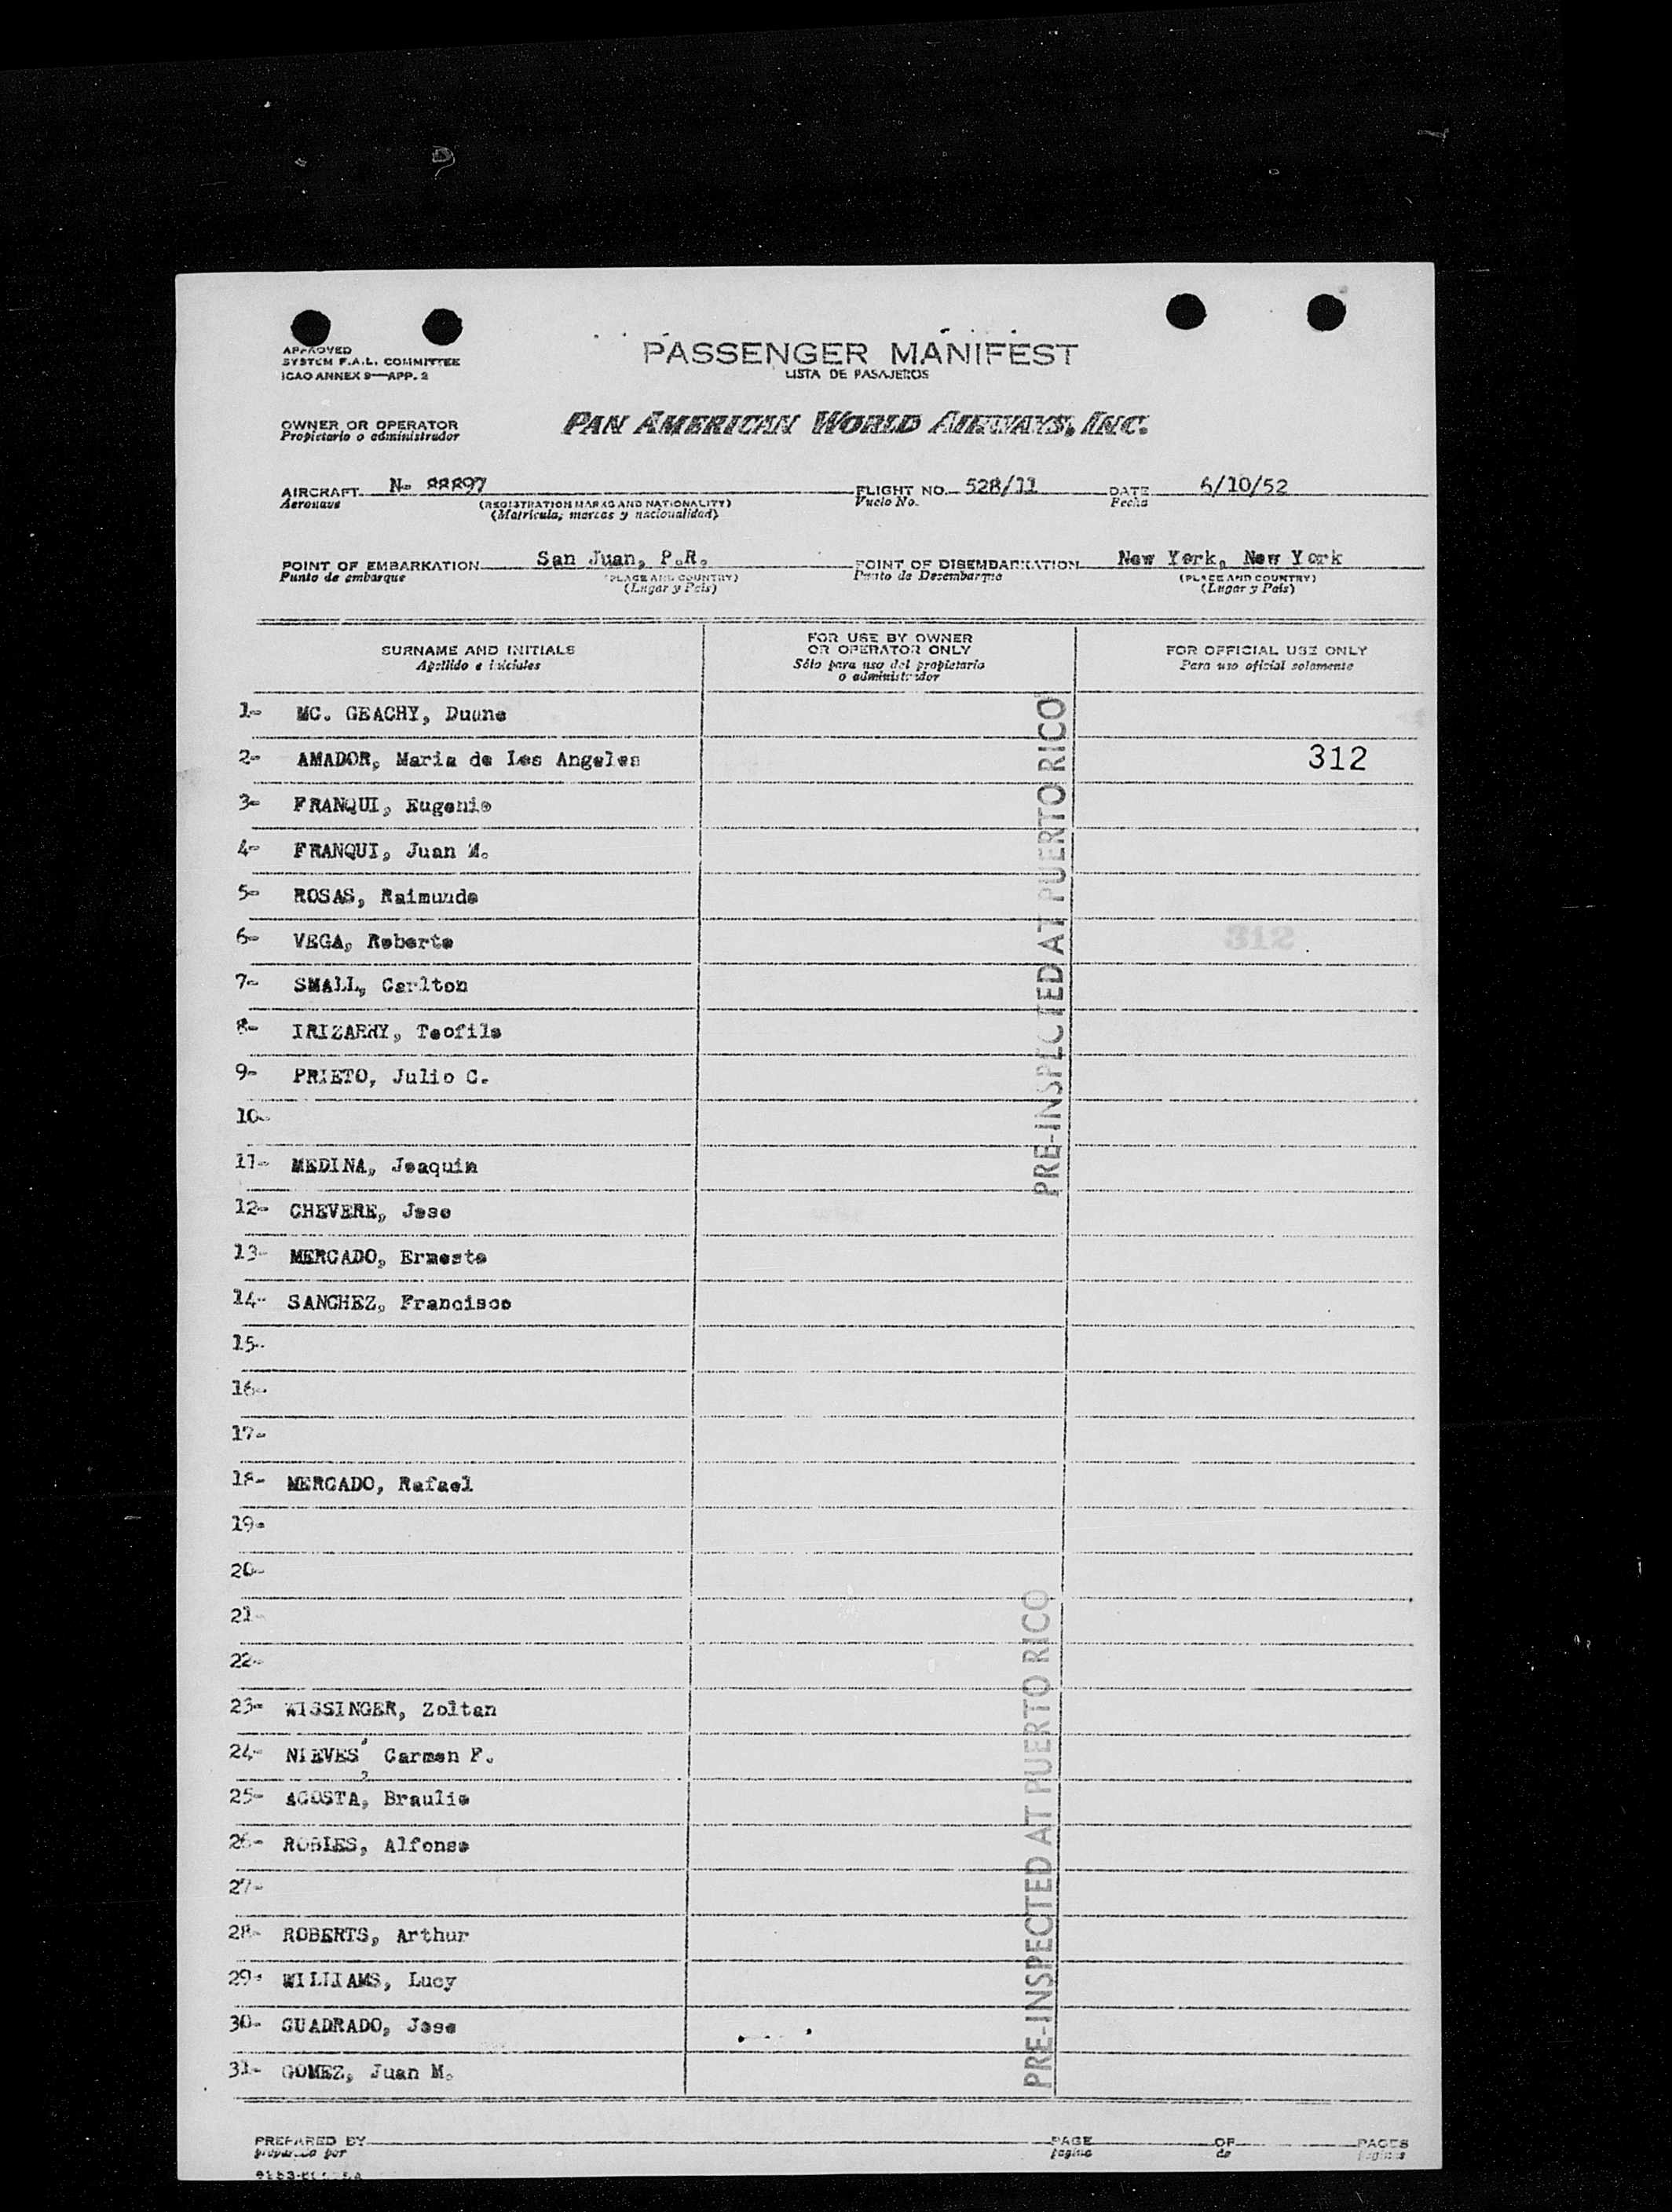 APPROVED
SYSTEM F.A.L. COMMITTEE
ICAO ANNEX 9—APP. 2
PASSENGER MANIFEST
LISTA DE PASAJEROS
OWNER OR OPERATOR
Propietario o administrador
PAN AMERICAN WORLD AIRWAYS, INC.
AIRCRAFT N- 88897 FLIGHT NO. 528/11 DATE 6/10/52
Aeronave (REGISTRATION MARKS AND NATIONALITY) Vuelo No. Fecha
(Matrícula, marcas y nacionalidad)
POINT OF EMBARKATION San Juan, P.R. POINT OF DISEMBARKATION New York, New York
Punto de embarque (PLACE AND COUNTRY) Punto de Desembarque (PLACE AND COUNTRY)
(Lugar y País) (Lugar y País)
SURNAME AND INITIALS
Apellido e iniciales
FOR USE BY OWNER
OR OPERATOR ONLY
Sólo para uso del propietario
o administrador
FOR OFFICIAL USE ONLY
Para uso oficial solamente
1- MC. GEACHY, Duane
2- AMADOR, Maria de Los Angeles 312
3- FRANQUI, Eugenio
4- FRANQUI, Juan M.
5- ROSAS, Raimundo
6- VEGA, Roberto 312
7- SMALL, Carlton
8- IRIZARRY, Teofilo
9- PRIETO, Julio C.
10-
11- MEDINA, Joaquin
12- CHEVERE, Jose
13- MERCADO, Ernesto
14- SANCHEZ, Francisco
15-
16-
17-
18- MERCADO, Rafael
19-
20-
21-
22-
23- WISSINGER, Zoltan
24- NIEVES, Carmen F.
25- ACOSTA, Braulio
26- ROBLES, Alfonso
27-
28- ROBERTS, Arthur
29- WILLIAMS, Lucy
30- GUADRADO, Jose
31- GOMEZ, Juan M.
PRE-INSPECTED AT PUERTO RICO
PRE-INSPECTED AT PUERTO RICO
PREPARED BY PAGE OF PAGES
preparado por página de páginas